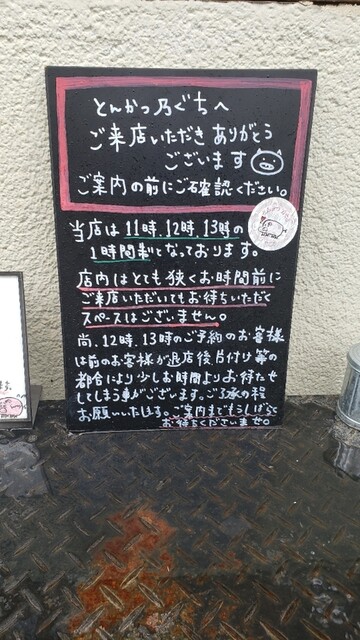 とんかつ乃ぐちへ
ご来店いただき ありがとう
ございます
ご案内の前にご確認ください。
当店は 11時、12時、13時の
1時間制となっております。
店内はとても狭くお時間前に
ご来店いただいてもお待ちいただく
スペースはございません。
尚、12時、13時のご予約のお客様
は前のお客様が退店後片付け等の
都合により少しお時間よりお待たせ
してしまう事がございます。ご了承の程
お願いいたします。ご案内までもうしばらく
お待ちくださいませ。
ます。